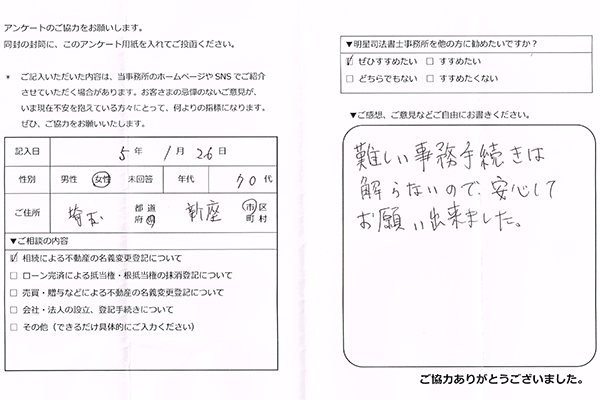 アンケートのご協力をお願いします。
同封の封筒に、このアンケート用紙を入れてご投函ください。
* ご記入いただいた内容は、当事務所のホームページやSNSでご紹介
させていただく場合があります。お客さまの忌憚のないご意見が、
いま現在不安を抱えている方々にとって、何よりの指標になります。
ぜひ、ご協力をお願いいたします。
記入日 5年 1月 26日
性別 男性 女性 未回答 年代 70代
ご住所 埼玉 都 道 府 県 新座 市 区 町 村
▼ご相談の内容
☑ 相続による不動産の名義変更登記について
□ ローン完済による抵当権・根抵当権の抹消登記について
□ 売買・贈与などによる不動産の名義変更登記について
□ 会社・法人の設立、登記手続きについて
□ その他（できるだけ具体的にご入力ください）
▼明星司法書士事務所を他の方に勧めたいですか？
☑ ぜひすすめたい □ すすめたい
□ どちらでもない □ すすめたくない
▼ご感想、ご意見などご自由にお書きください。
難しい事務手続きは
解らないので、安心して
お願い出来ました。
ご協力ありがとうございました。